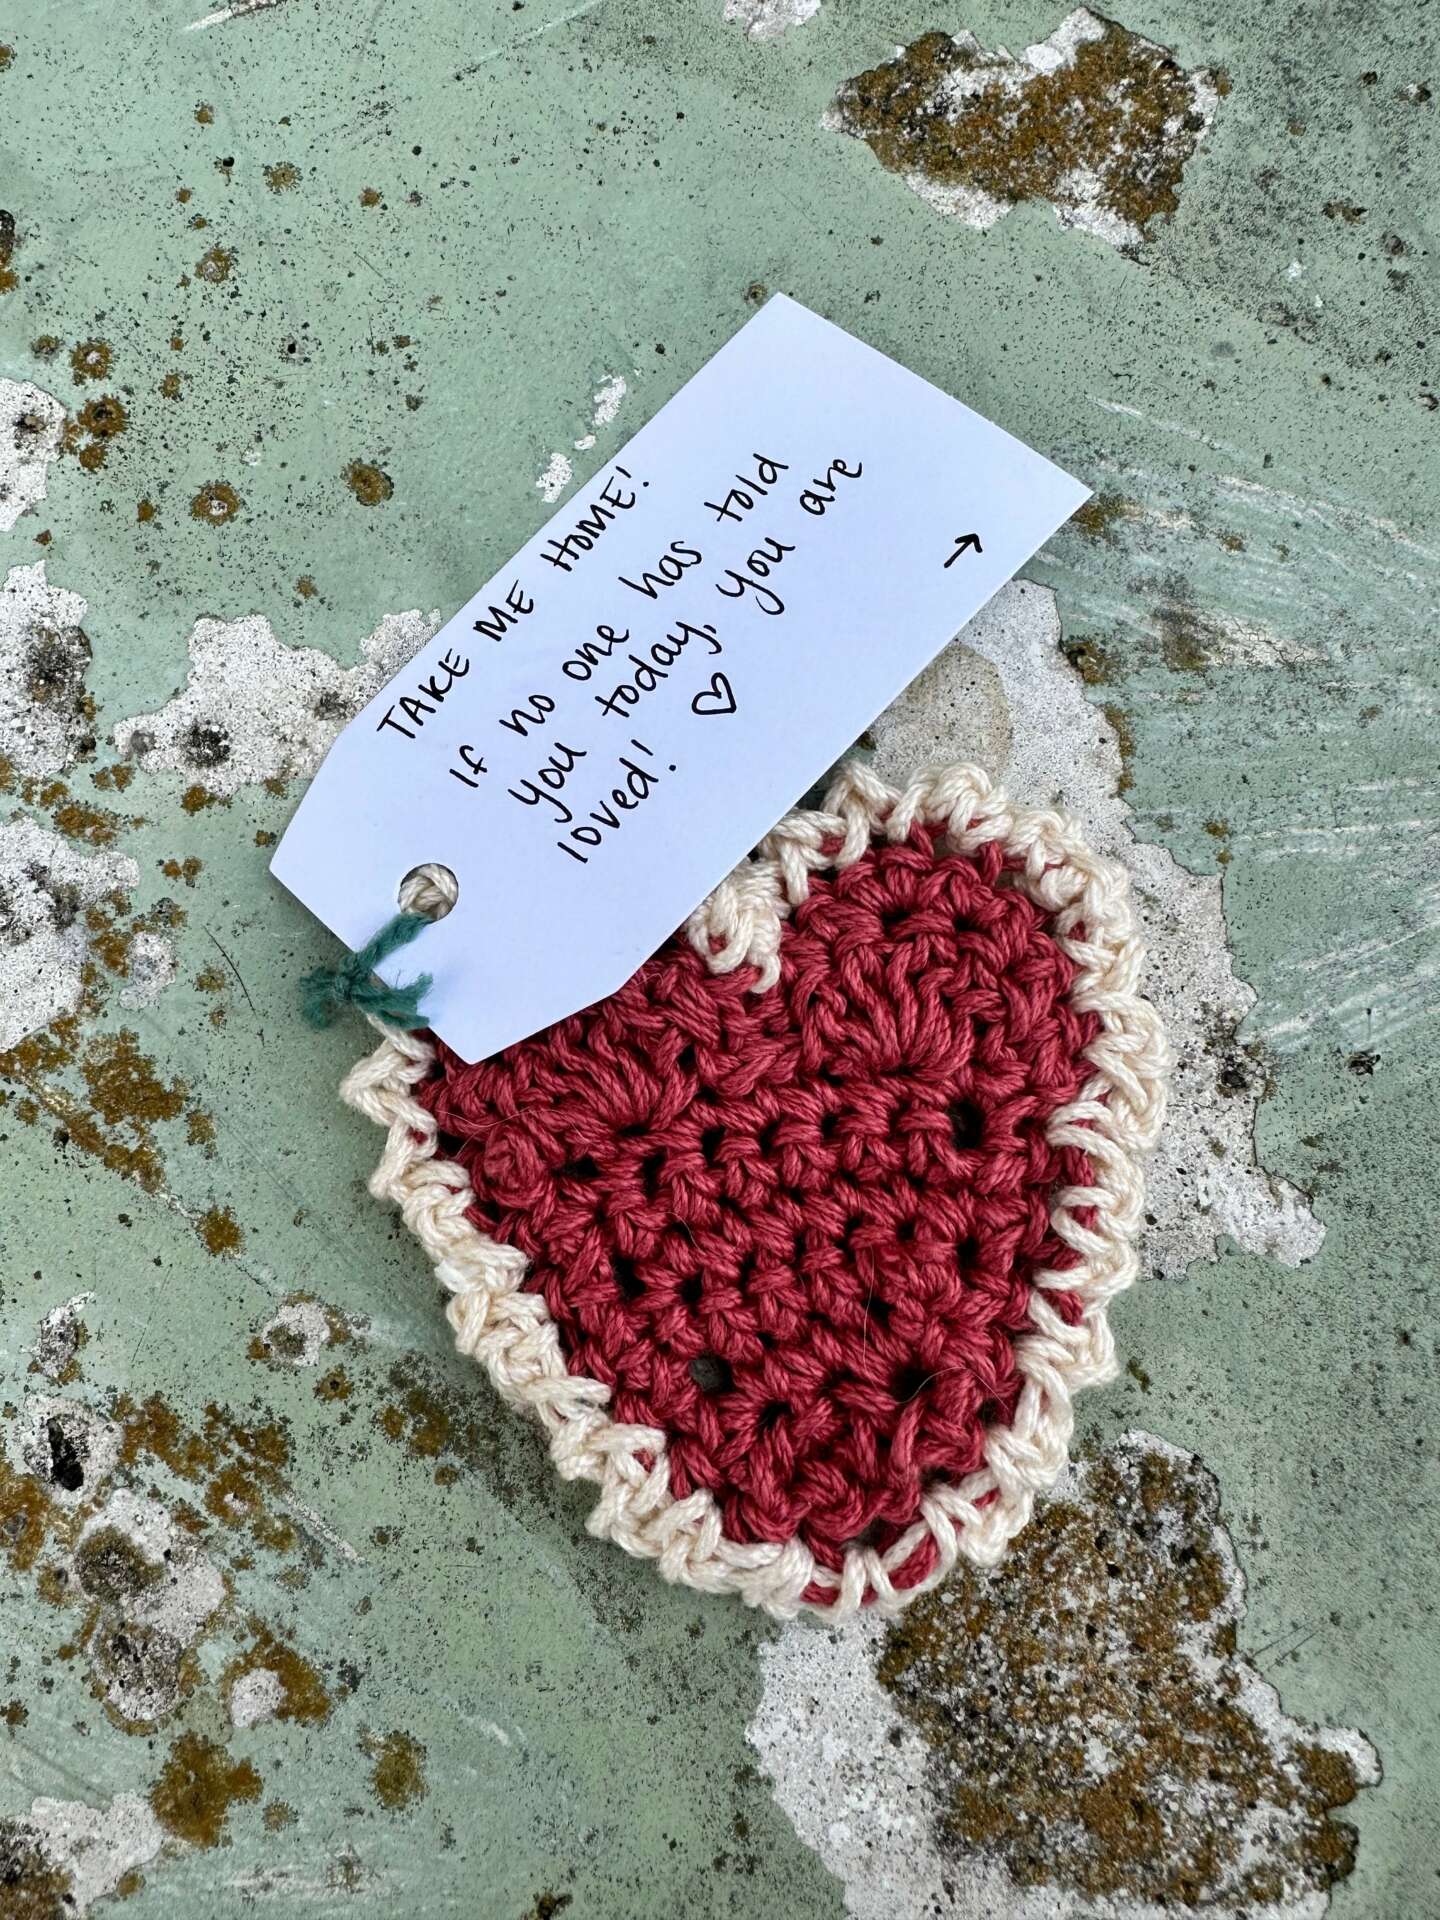 TAKE ME HOME!
If no one has told
you today, you are
loved! ♡
→